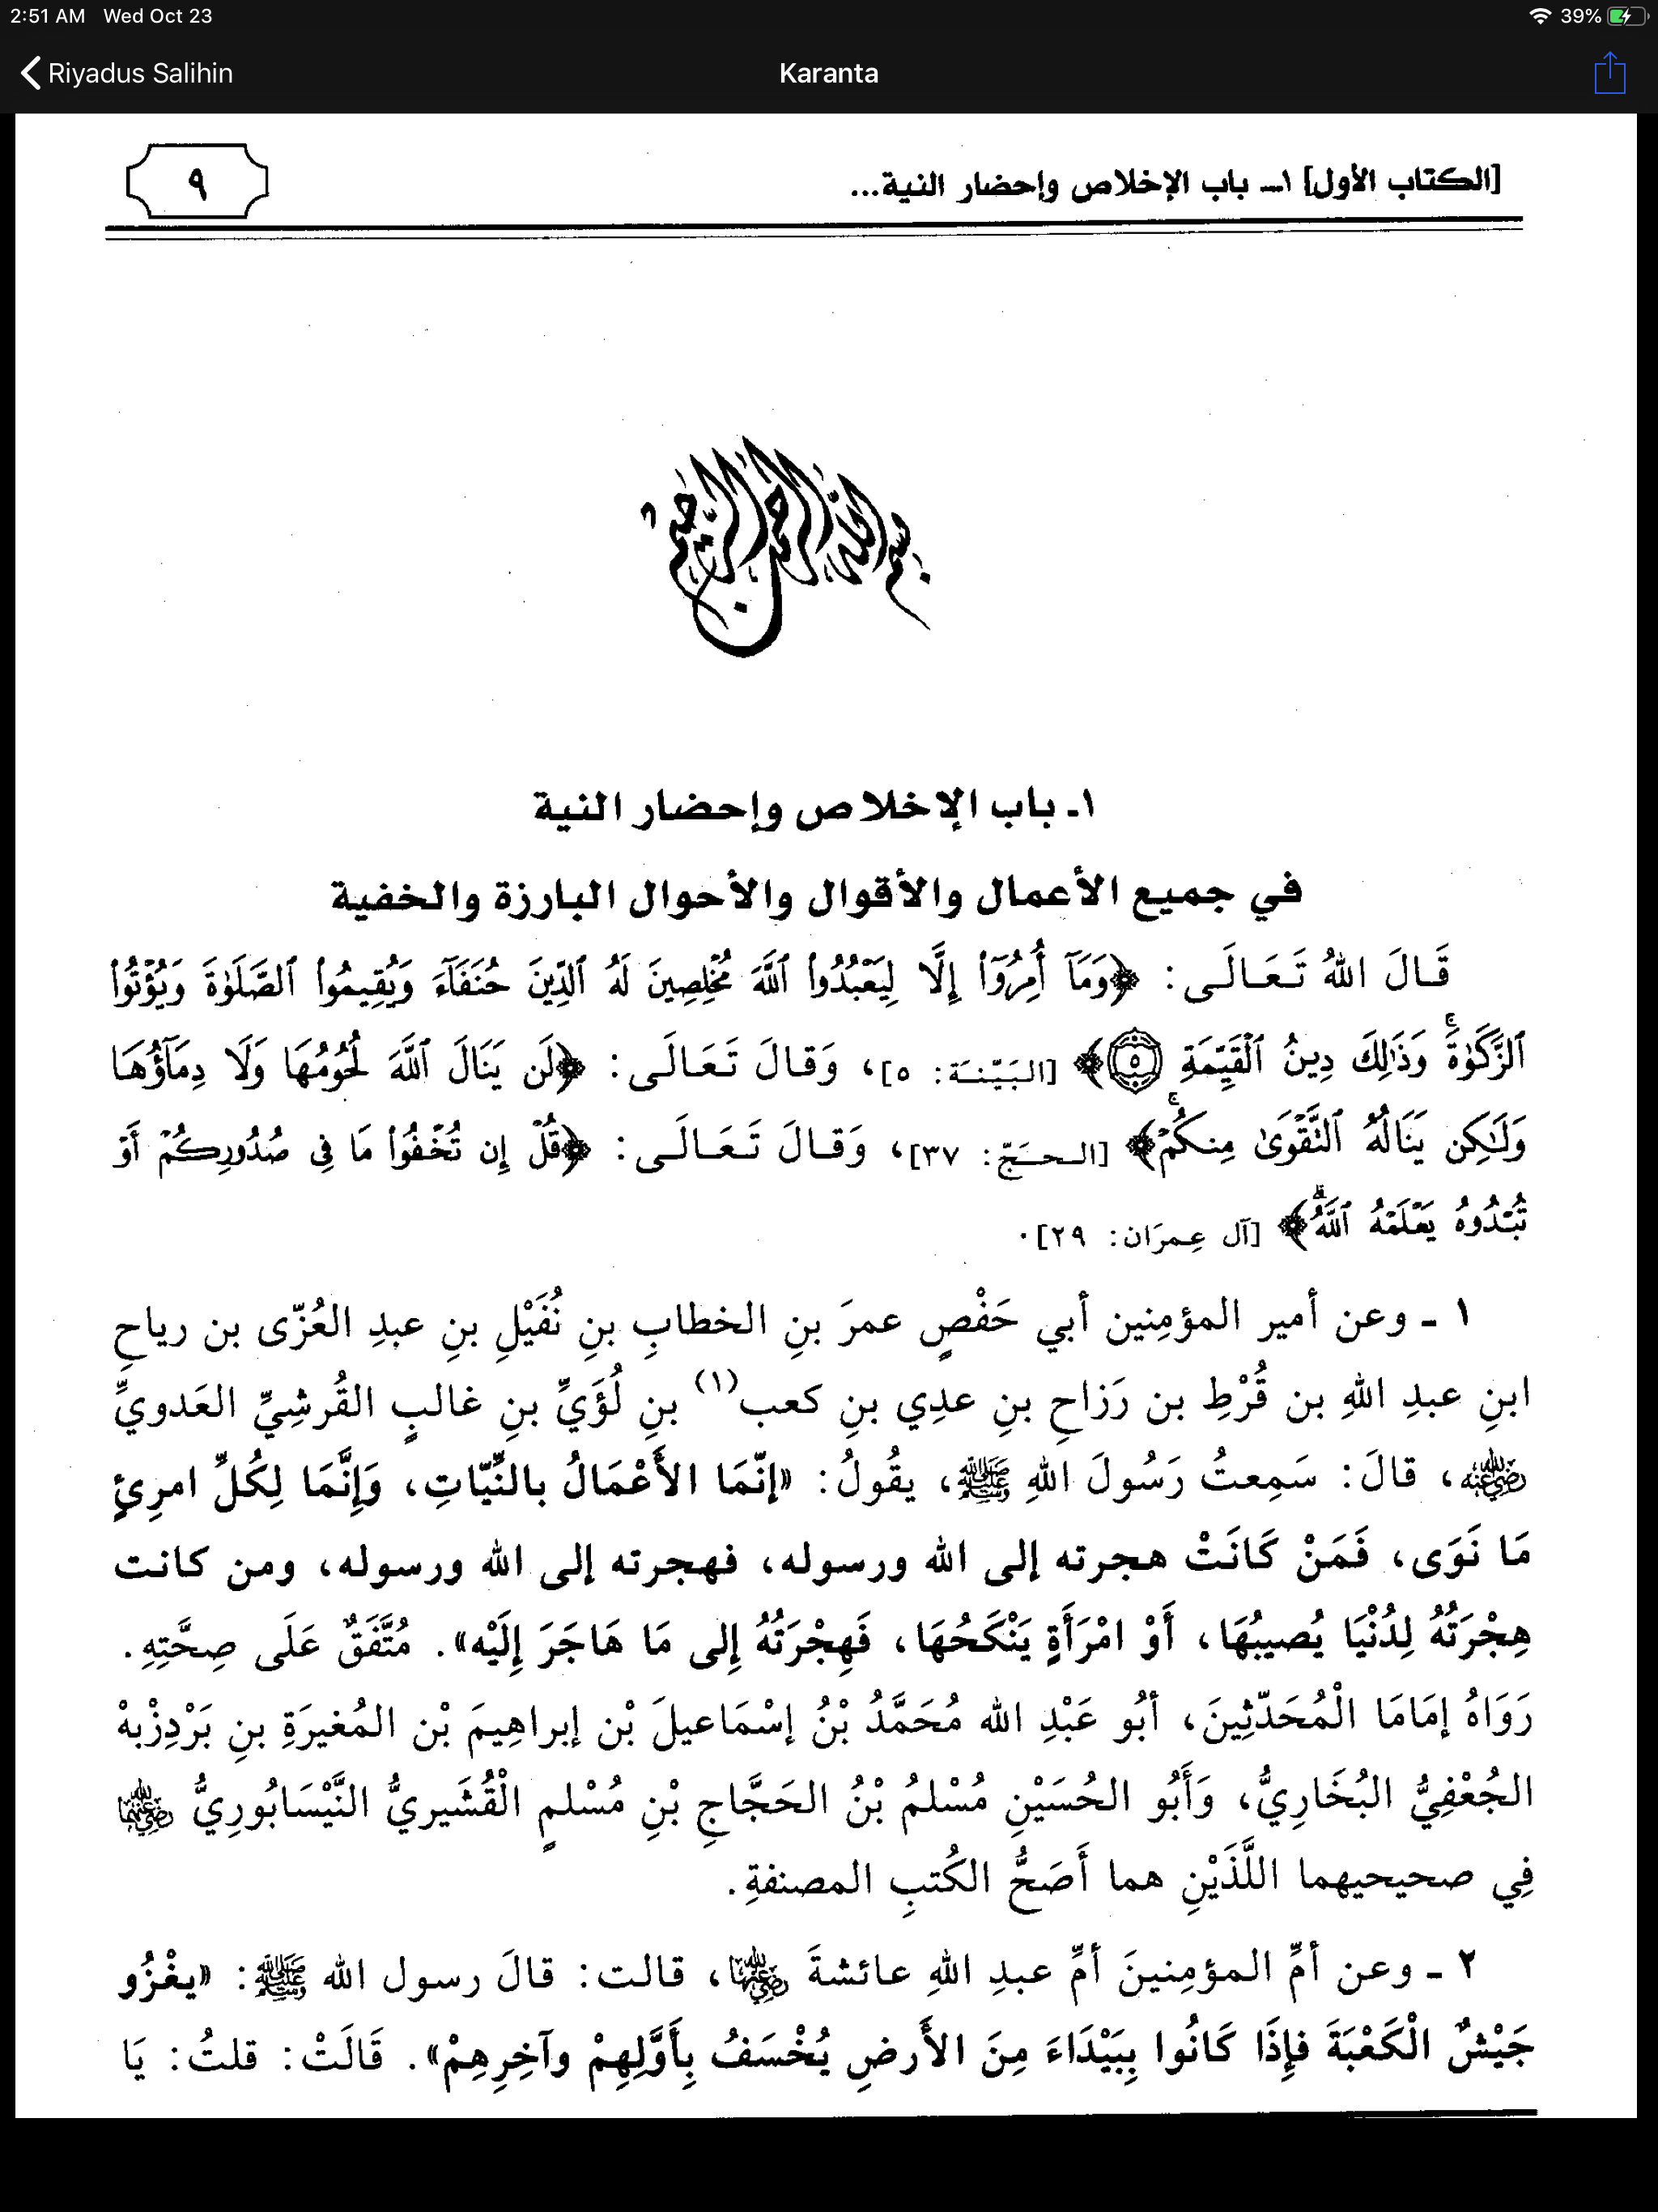 2:51 AM Wed Oct 23 39%
Riyadus Salihin Karanta
[الكتاب الأول] ١ـ باب الإخلاص وإحضار النية... ٩
بسم الله الرحمن الرحيم
١ـ باب الإخلاص وإحضار النية
في جميع الأعمال والأقوال والأحوال البارزة والخفية
قَالَ اللهُ تَعَالَى: ﴿وَمَآ أُمِرُوٓا۟ إِلَّا لِيَعْبُدُوا۟ ٱللَّهَ مُخْلِصِينَ لَهُ ٱلدِّينَ حُنَفَآءَ وَيُقِيمُوا۟ ٱلصَّلَوٰةَ وَيُؤْتُوا۟
ٱلزَّكَوٰةَۚ وَذَٰلِكَ دِينُ ٱلْقَيِّمَةِ ٥﴾ [البَيّنَة: ٥]، وَقالَ تَعَالَى: ﴿لَن يَنَالَ ٱللَّهَ لُحُومُهَا وَلَا دِمَآؤُهَا
وَلَٰكِن يَنَالُهُ ٱلتَّقْوَىٰ مِنكُمْۚ﴾ [الحَجّ: ٣٧]، وَقَالَ تَعَالَى: ﴿قُلْ إِن تُخْفُوا۟ مَا فِى صُدُورِكُمْ أَوْ
تُبْدُوهُ يَعْلَمْهُ ٱللَّهُۗ﴾ [آل عِمرَان: ٢٩].
١ ـ وعن أمير المؤمِنين أبي حَفْصٍ عمرَ بنِ الخطابِ بنِ نُفَيْلِ بنِ عبدِ العُزّى بن رياحِ
ابنِ عبدِ اللهِ بن قُرْطِ بن رَزاحِ بنِ عدِي بنِ كعب(١) بنِ لُؤَيِّ بنِ غالبٍ القُرشِيِّ العَدويِّ
رضي الله عنه، قالَ: سَمِعتُ رَسُولَ اللهِ ﷺ، يقُولُ: «إنّمَا الأَعْمَالُ بالنِّيّاتِ، وَإِنَّمَا لِكُلِّ امرِئٍ
مَا نَوَى، فَمَنْ كَانَتْ هجرته إلى الله ورسوله، فهجرته إلى الله ورسوله، ومن كانت
هِجْرَتُهُ لِدُنْيَا يُصيبُهَا، أَوْ امْرَأَةٍ يَنْكَحُهَا، فَهِجْرَتُهُ إِلى مَا هَاجَرَ إِلَيْه». مُتَّفَقٌ عَلَى صِحَّتِهِ.
رَوَاهُ إمَامَا الْمُحَدّثِينَ، أبُو عَبْدِ الله مُحَمَّدُ بْنُ إسْمَاعيلَ بْن إبراهِيمَ بْن المُغيرَةِ بنِ بَرْدِزْبهْ
الجُعْفِيُّ البُخَارِيُّ، وَأَبُو الحُسَيْنِ مُسْلمُ بْنُ الحَجَّاجِ بْنِ مُسْلمٍ الْقُشَيريُّ النَّيْسَابُورِيُّ رضي الله عنهما
فِي صحيحيهما اللَّذَيْنِ هما أَصَحُّ الكُتبِ المصنفةِ.
٢ ـ وعن أمِّ المؤمِنينَ أمِّ عبدِ اللهِ عائشةَ رضي الله عنها، قالت: قالَ رسول الله ﷺ: «يغْزُو
جَيْشٌ الْكَعْبَةَ فإِذَا كَانُوا بِبَيْدَاءَ مِنَ الأَرضِ يُخْسَفُ بِأَوَّلِهِمْ وآخِرِهِمْ». قَالَتْ: قلتُ: يَا